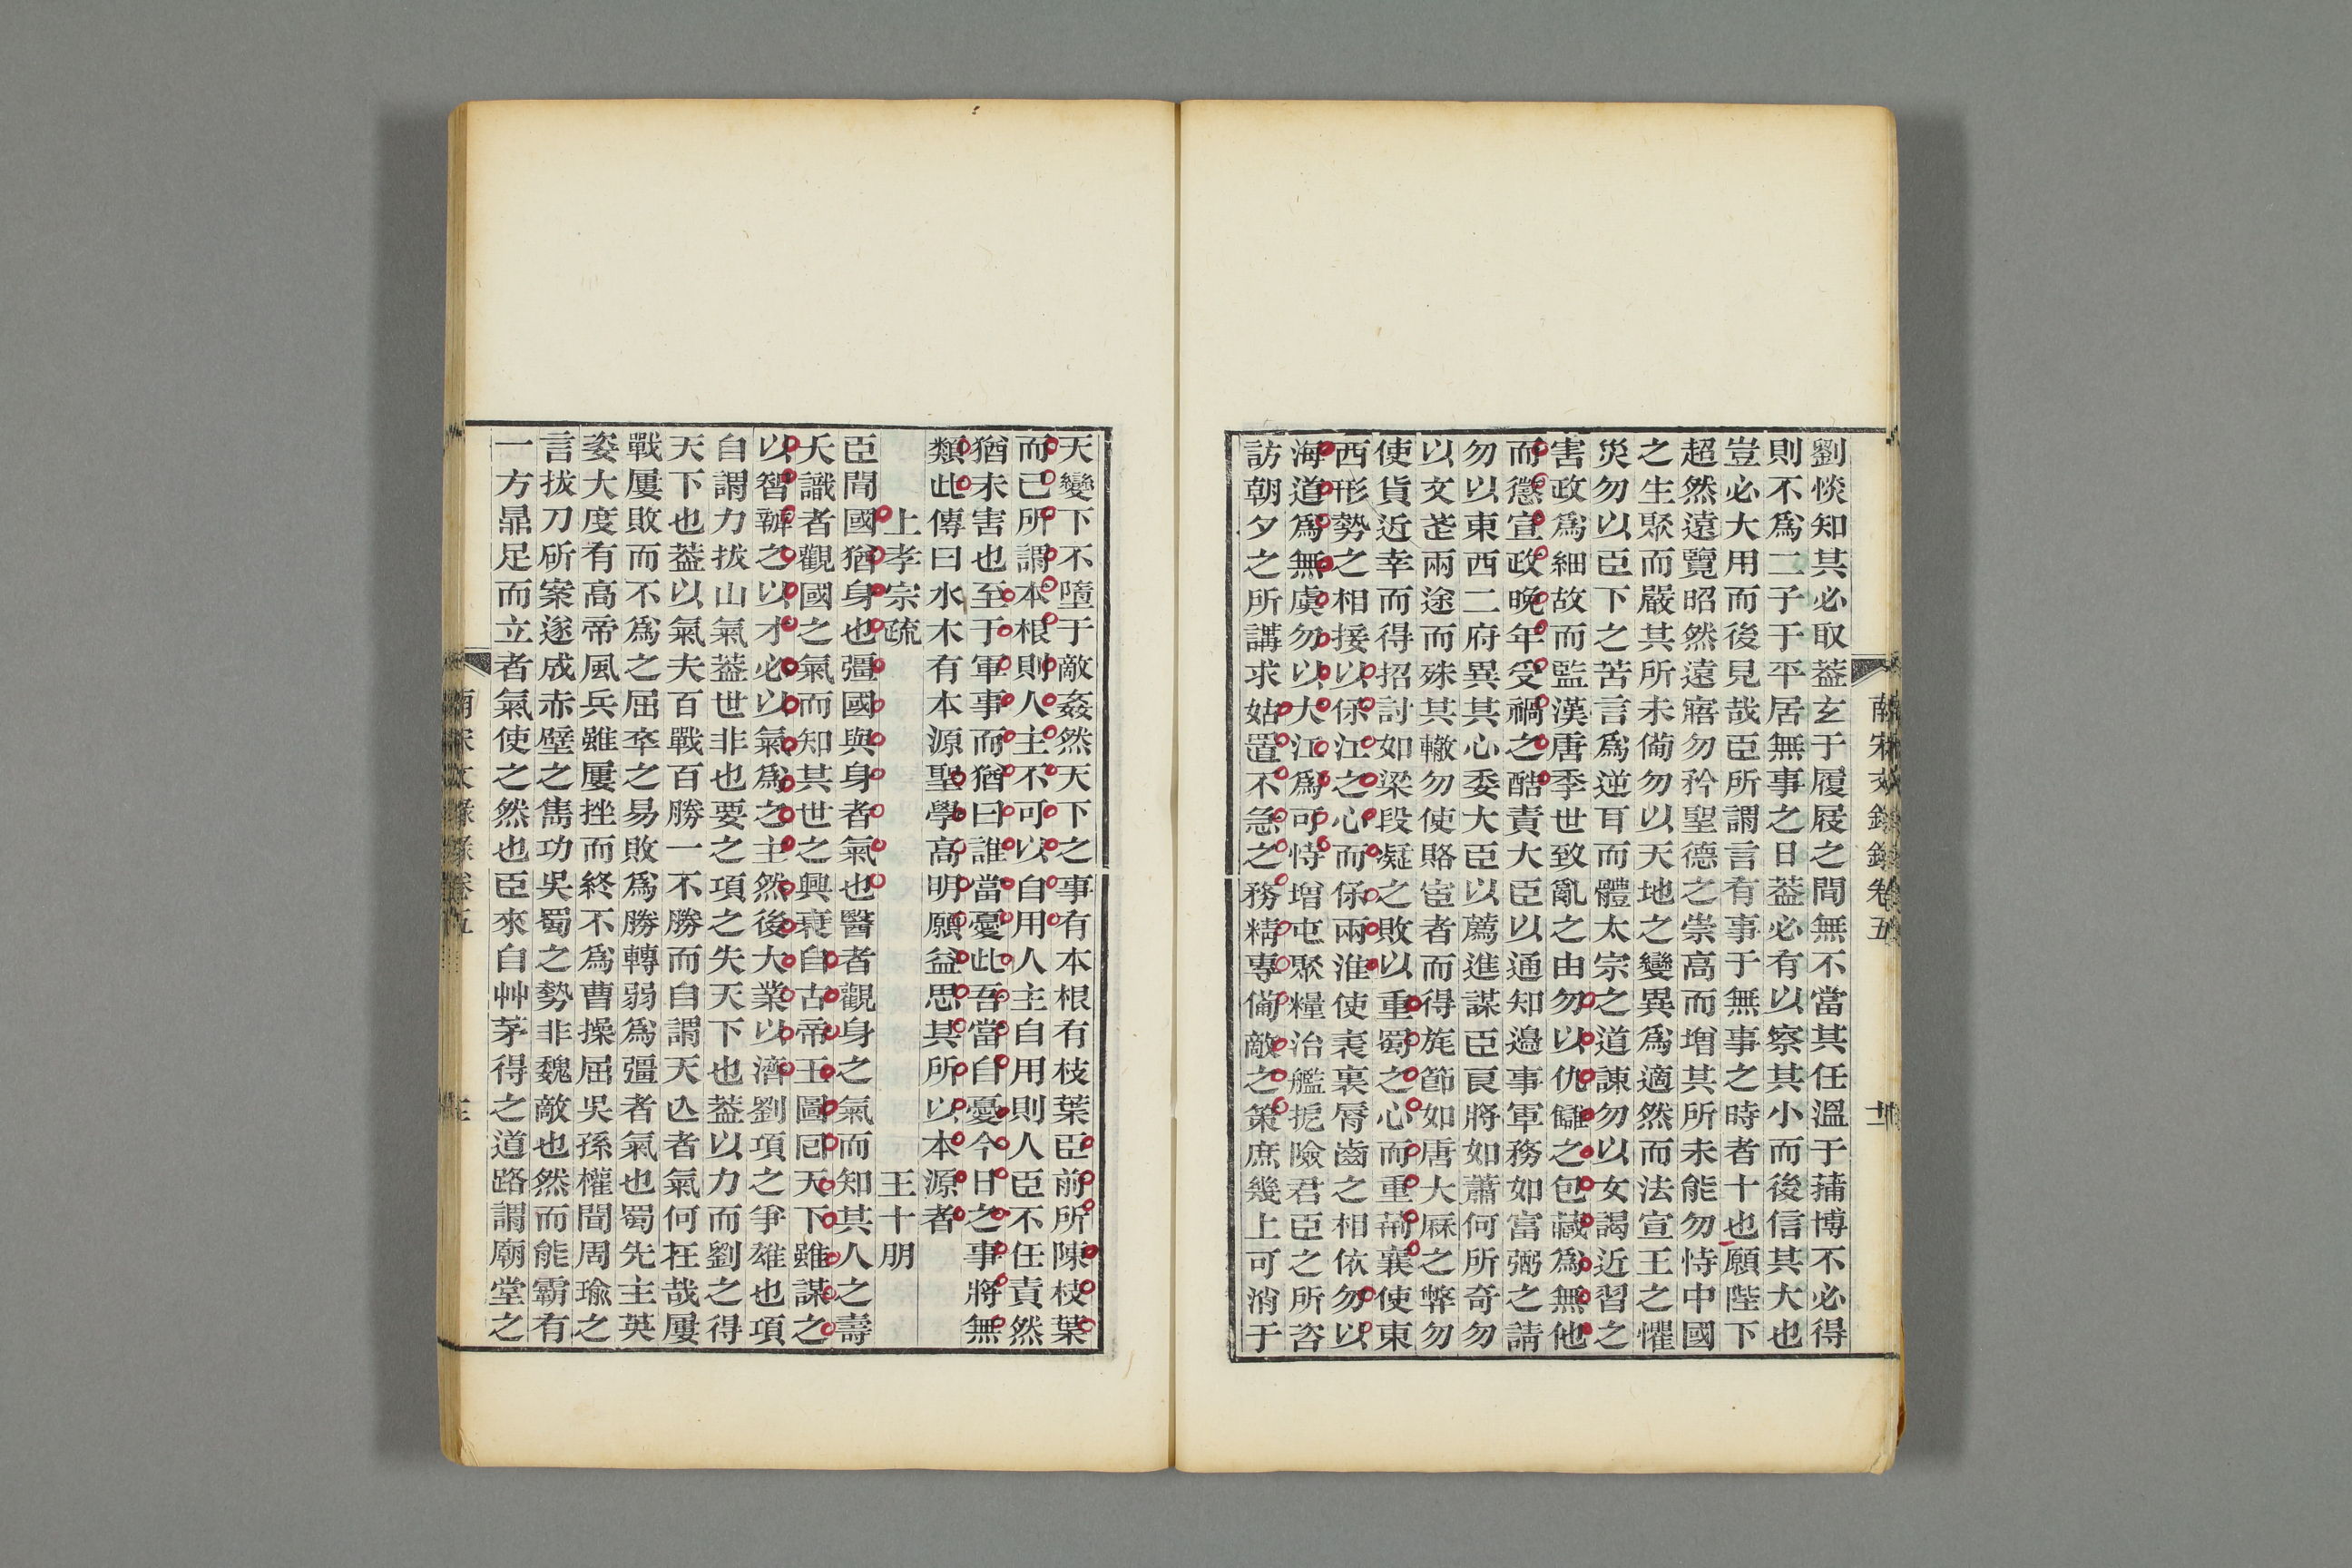 劉惔知其必取葢玄于履屐之間無不當其任溫于蒱博不必得
則不爲二子于平居無事之日葢必有以察其小而後信其大也
豈必大用而後見哉臣所謂言有事于無事之時者十也願陛下
超然遠覽昭然遠寤勿矜聖德之崇高而增其所未能勿恃中國
之生聚而嚴其所未備勿以天地之變異爲適然而法宣王之懼
災勿以臣下之苦言爲逆耳而體太宗之道諫勿以女謁近習之
害政爲細故而監漢唐季世致亂之由勿以仇讎之包藏爲無他
而懲宣政晚年受禍之酷責大臣以通知邊事軍務如富弼之請
勿以東西二府異其心委大臣以薦進謀臣良將如蕭何所奇勿
以文茊兩途而殊其轍勿使賂宦者而得旄節如唐大厤之弊勿
使貨近幸而得招討如梁段凝之敗以重蜀之心而重荊襄使東
西形勢之相接以保江之心而保兩淮使表裏脣齒之相依勿以
海道爲無虞勿以大江爲可恃增屯聚糧治艦扼險君臣之所咨
訪朝夕之所講求姑置不急之務精專備敵之策庶幾上可消于
南宋文錄錄卷五
天變下不墮于敵姦然天下之事有本根有枝葉臣前所陳枝葉
而已所謂本根則人主不可以自用人主自用則人臣不任責然
猶未害也至于軍事而猶曰誰當憂此吾當自憂今日之事將無
類此傳曰水木有本源聖學高明願益思其所以本源者
上孝宗疏 王十朋
臣聞國猶身也彊國與身者氣也醫者觀身之氣而知其人之壽
夭識者觀國之氣而知其世之興衰自古帝王圖囘天下雖謀之
以智辦之以才必以氣爲之主然後大業以濟劉項之爭雄也項
自謂力拔山氣葢世非也要之項之失天下也葢以力而劉之得
天下也葢以氣夫百戰百勝一不勝而自謂天亾者氣何在哉屢
戰屢敗而不爲之屈卒之易敗爲勝轉弱爲彊者氣也蜀先主英
姿大度有高帝風兵雖屢挫而終不爲曹操屈吳孫權聞周瑜之
言拔刀斫案遂成赤壁之雋功吳蜀之勢非魏敵也然而能霸有
一方鼎足而立者氣使之然也臣來自艸茅得之道路謂廟堂之
南宋文錄錄卷五